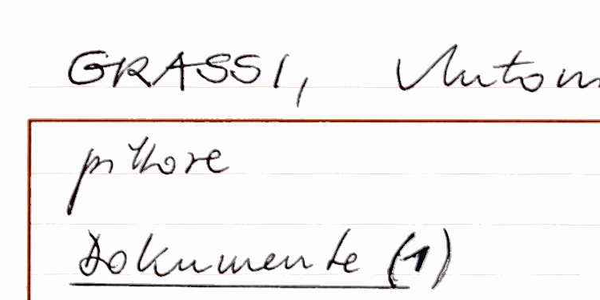 GRASSI, Anton
pittore
Dokumente (1)